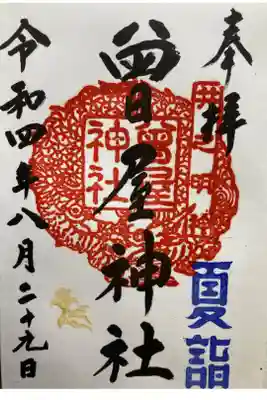 奉拝
夏詣
曽屋神社
曽屋
神社
令和四年八月二十九日